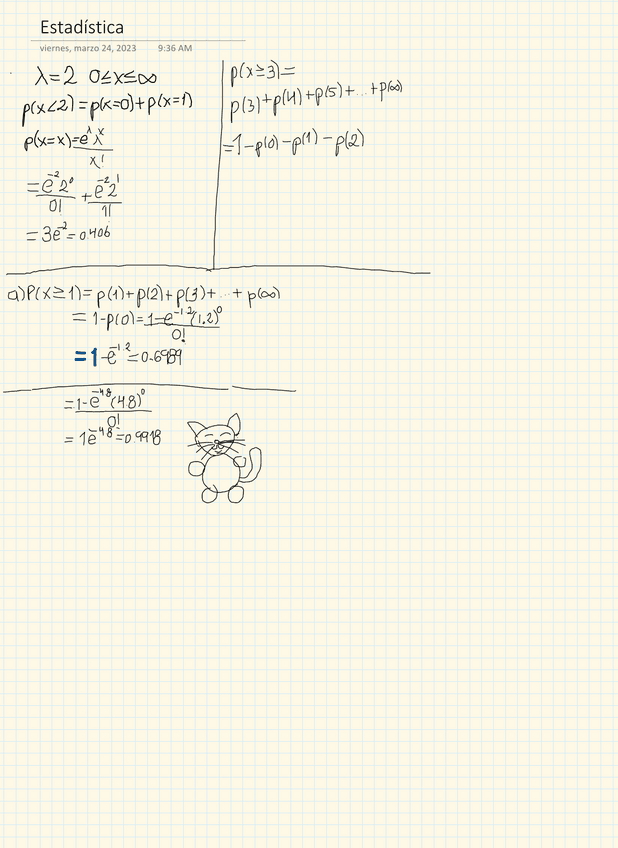 Estadística
viernes, marzo 24, 2023 9:36 AM
λ=2 0≤x≤∞
p(x<2)=p(x=0)+p(x=1)
p(x=x)=e^λ λ^x / x!
=e^-2 2^0 / 0! + e^-2 2^1 / 1!
=3e^-2=0.406
p(x≥3)=
p(3)+p(4)+p(5)+...+p(∞)
=1-p(0)-p(1)-p(2)
a)P(x≥1)=p(1)+p(2)+p(3)+...+p(∞)
=1-p(0)=1-e^-1.2(1.2)^0 / 0!
=1-e^-1.2=0.6989
=1-e^-4.8(4.8)^0 / 0!
=1e^-4.8=0.9918